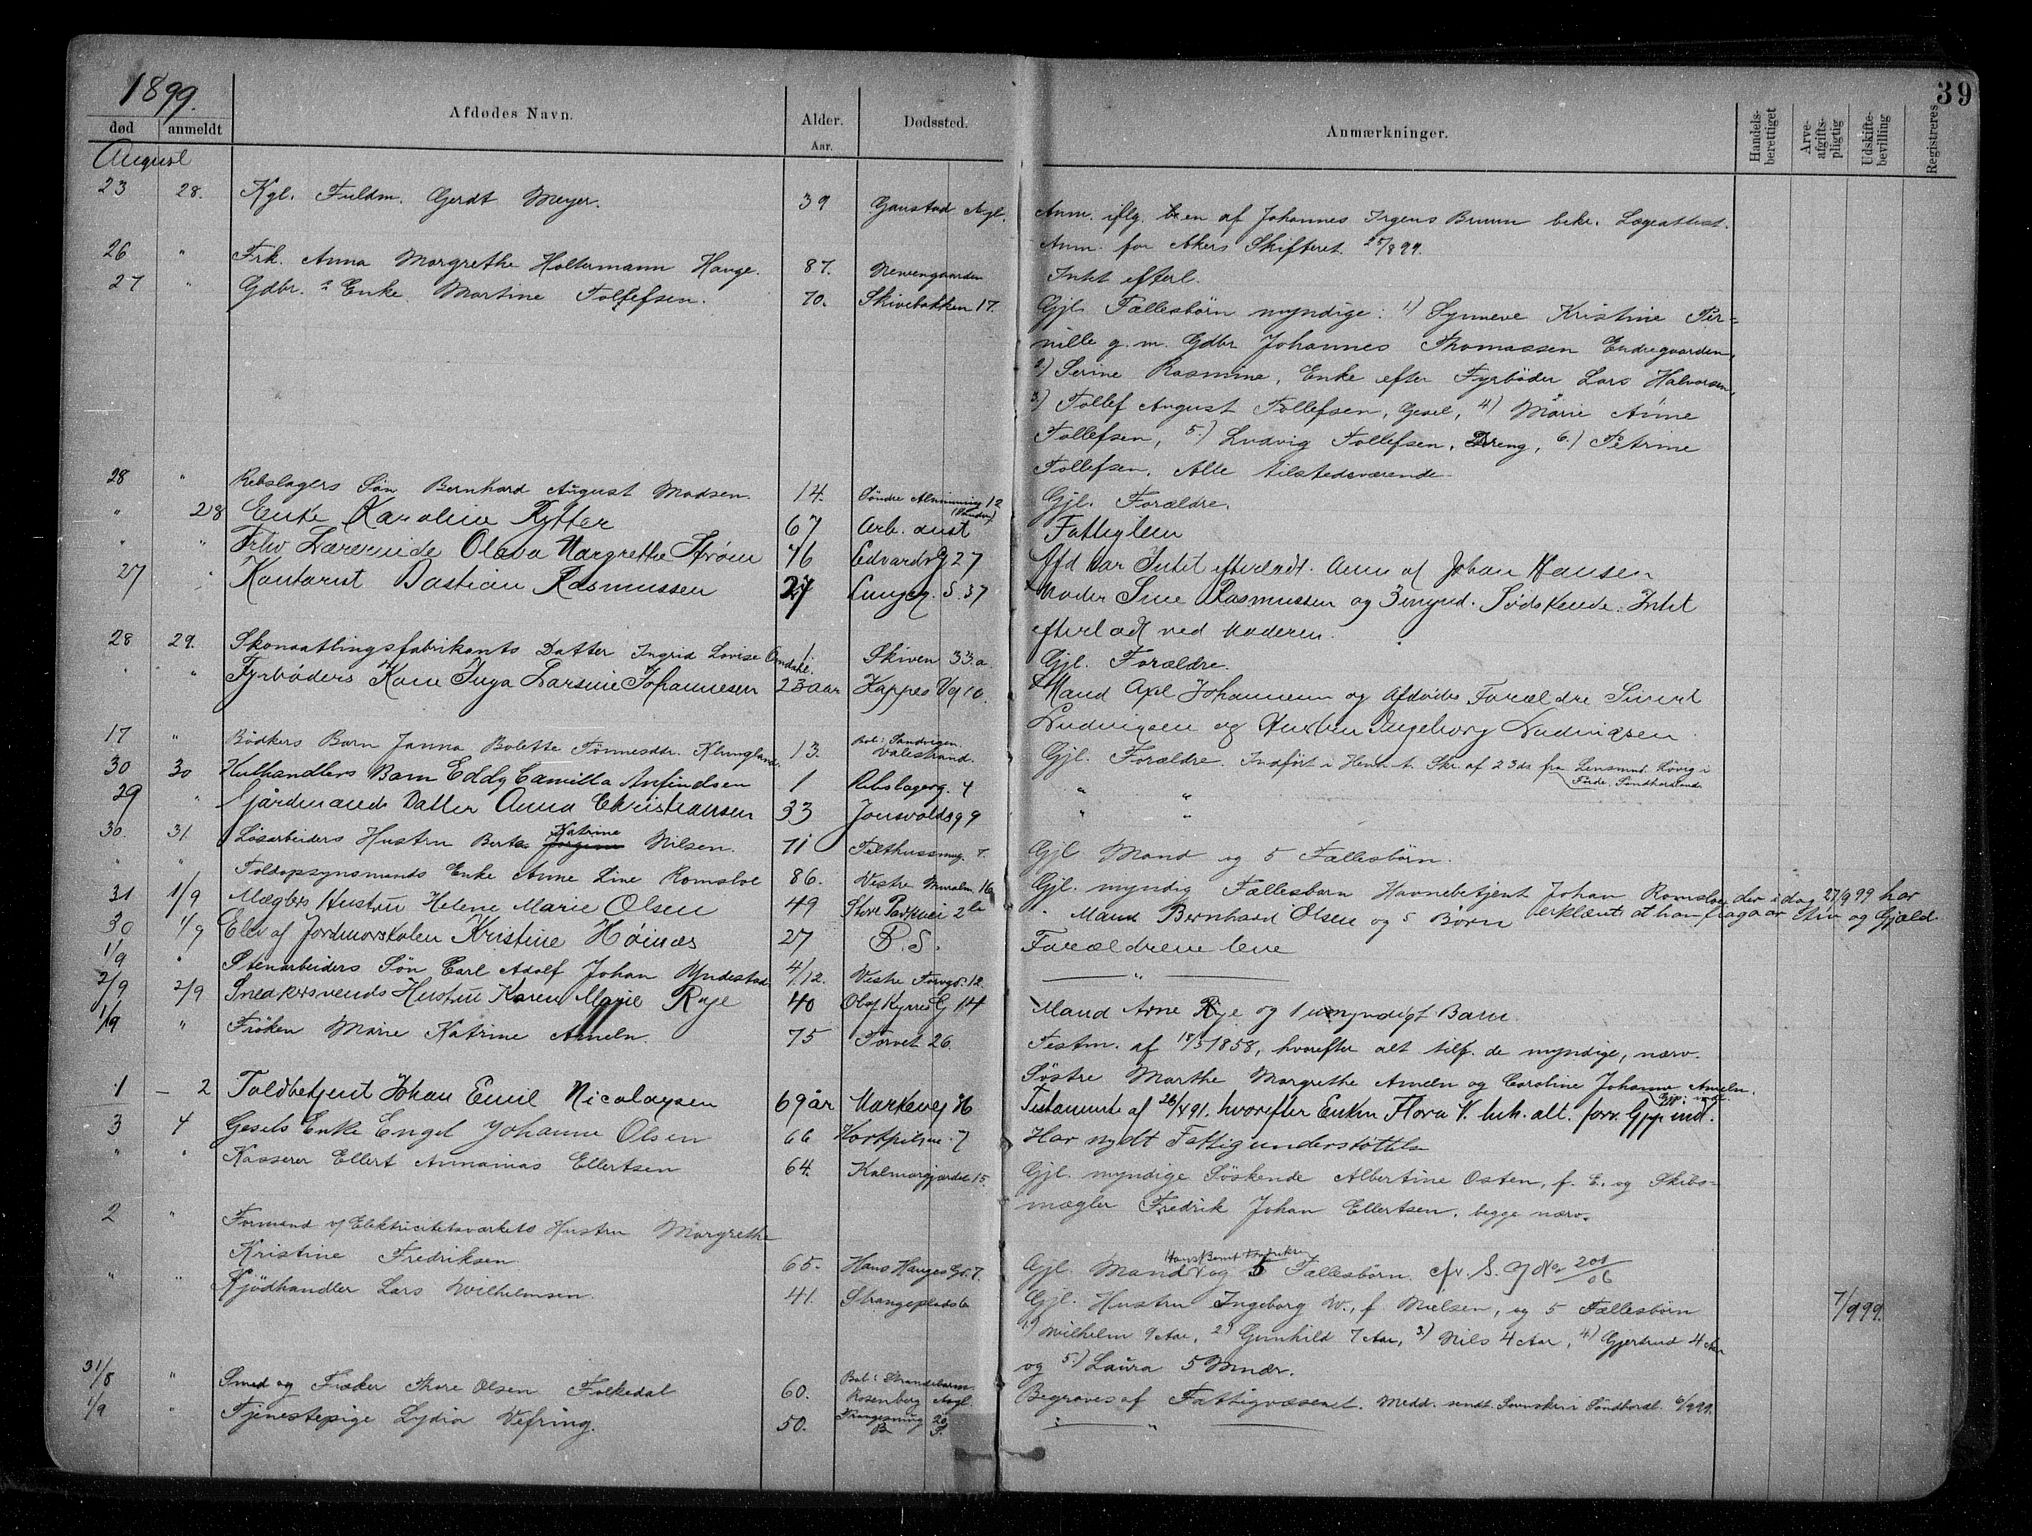 1899.
39
død
anmeldt
Afdødes Navn.
Alder.
Aar.
Dødssted.
Anmærkninger.
Handels-berettiget
Arve-afgifts-pligtig
Udskifte-bevilling
Registreres
August
23 28. Kgl. Fuldm. Gerdt Meyer. 39 Gaustad Asyl.
Anm. iflg. en af Johannes Irgens Bruun bekr. Lægeattest.
Anm. for Akers Skifteret 25/8 99.
26 " Frk. Anna Margrethe Holtermann Hauge. 87. Nevengaarden
Intet efterl.
27 " Gdbr.s Enke Martine Tollefsen. 70. Skivebakken 17.
Gjl. Fællesbørn myndige: 1) Synneve Kristine Per=
nille g. m. Gdbr Johannes Thomassen Endregaarden,
2) Serine Rasmine, Enke efter Fyrbøder Lars Halvorsen,
3) Tollef August Tollefsen, Gesel, 4) Marie Anne
Tollefsen, 5.) Ludvig Tollefsen, Dreng, 6.) Petrine
Tollefsen. Alle tilstedeværende.
28 " Rebslagers Søn Bernhard August Madsen. 14. Søndre Almenning 12
Gjl. Forældre.
" 28 Enke Karoline Rytter 67 Arb. anst
Fattiglem
" " Frhv Lærerinde Olava Margrethe Strøm 46 Edvardsg 27
Afd har Intet efterladt. Anm af Johan Hansen
27 " Kontorist Bastian Rasmussen 27 Lungeg. S. 37
Moder Sine Rasmussen og 3 mynd. Sødskende. Intet
efterladt ved Moderen.
28 29. Skomaatlingsfabrikants Datter Ingrid Lovise Omdahl. 1 Skiven 33.a.
Gjl. Forældre.
" " Fyrbøders Kone Inga Larsine Johannesen 23 aar Kappes Vg 10.
Mand Axel Johannesen og Afdødes Forældre Sivert
Ludvigsen og Hustru Ingeborg Ludvigsen.
17 " Bødkers Barn Janna Bolette Tønnesdtr. Klungland. 13. Bol: Sandvigen. Valestrand.
Gjl. Forældre. Indført i Henh. t. Skr. af 23ds fra Lensmnd. Løvig i
Søndhorland
30 30 Kulhandlers Barn Eddy Camilla Anfindsen 1 Rebslagerg. 4
" "
29 " Gjårdmands Datter Anna Christiansen 33 Jonsvoldsg 9
" "
30. 31 Løsarbeiders Hustru Berta Katrine Nilsen. 71 Felthussmug. 7.
Gjl. Mand og 5 Fællesbørn.
" " Toldopsynsmands Enke Anne Line Romsloe 86. Vestre Muralm. 16
Gjl. myndig Fællesbarn Havnebetjent Johan Romsloe der idag 27/9 99 har
erklæret at han fragaar Stiv og Gjæld.
31 1/9 Mæglers Hustru Helene Marie Olsen 49 Store Parkvei 2b
" Mand Bernhard Olsen og 5 Børn
30 1/9 Elev af Jordmorskolen Kristine Høinæs 27 B. S.
Forældrene leve
1/9 " Stenarbeiders Søn Carl Adolf Johan Yndestad. 4/12. Vestre Torvgd. 12.
"
2/9 2/9 Snedkersvends Hustru Karen Marie Rye 40 Olaf Kyrres G 14
Mand Arne Rye og 1 umyndigt Barn.
1/9 " Frøken Marie Katrine Ameln. 75 Torvet 26.
Testm. af 18/5 1858, hvorefter alt tilf. de myndige, nærv.
Søstre Marthe Margrethe Ameln og Caroline Johanne Ameln.
1 — 2 Toldbetjent Johan Emil Nicolaysen 69 år Markevej 16
Testamente af 26/4 91. hvorefter Enken Flora N. beh. alt. forv. Gjp. ind.
3 4 Gesels Enke Engel Johanne Olsen 66 Hospitsm. 7
Har nydt Fattigunderstøttelse
" " Kasserer Ellert Annanias Ellertsen 64. Kalmargjærdet 15.
Gjl. myndige Søskende Albertine Osten, f. E., og Skibs=
mægler Fredrik Johan Ellertsen, begge nærv.
2 " Formand v/ Elektricitetsværkets Hustru Margrethe
Kristine Fredriksen. 65. Hans Hauges Gd. 7.
Hans Bernt Fredriksen
Gjl. Mand og 5 Fællesbørn. cfr. S. J No 201/06
" " Kjødhandler Lars Wilhelmsen. 41. Strangeplads 6
Gjl. Hustru Ingeborg W., f. Nielsen, og 5 Fællesbørn
7/9 99.
1) Wilhelm 9 Aar, 2) Gunhild 7 Aar, 3) Nils 4 Aar, 4) Gjertrud 4 Aar
og 5) Laura 5 Mndr.
31/8 " Smed og Fisker Thore Olsen Folkedal 60. Bol: Strandebarm. Rosenberg Asyl.
Begraves af Fattigvæsenet. Medd. sendt Sorenskr. i Søndhordl. 6/9 99.
1/9 " Tjenestepige Lydia Vefring. 50.
" "